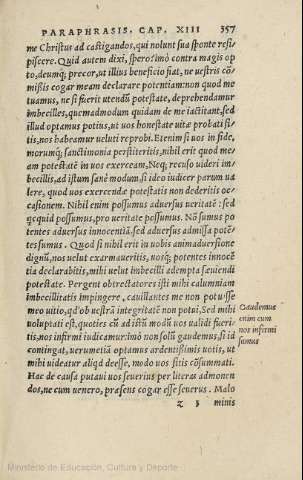 PARAPHRASIS. CAP. XIII 357
me Christus ad castigandos, qui nolunt sua sponte resi-
piscere. Quid autem dixi, spero: imò contra magis op
to, deumq; precor, ut illius beneficio fiat, ne uestris cõ-
mißis cogar meam declarare potentiam: non quod me
tuamus, ne si fuerit utendũ potestate, deprehendamur
imbecilles, quemadmodum quidam de me iactitant, sed
illud optamus potius, ut uos honestate uitæ probati si-
tis, nos habeamur ueluti reprobi. Etenim si uos in fide,
morumq́; sanctimonia perstiteritis, nihil erit quod me-
am potestatẽ in uos exerceam. Neq; recuso uideri im-
becillis, ad istum sanè modum, si ideo iudicer parum ua
lere, quod uos exercendæ potestatis non dederitis oc-
casionem. Nihil enim possumus aduersus ueritatẽ: sed
quicquid possumus, pro ueritate possumus. Nõ sumus po
tentes aduersus innocentiã, sed aduersus admissa potẽ-
tes sumus. Quod si nihil erit in uobis animaduersione
dignũ, nos uelut exarmaueritis, uosq́; potentes innocẽ
tia declarabitis, mihi uelut imbecilli adempta sæuiendi
potestate. Pergent obtrectatores isti mihi calumniam
imbecillitatis impingere, cauillantes me non potuisse
meo uitio, qd' ob uestrã integritatẽ non potui, Sed mihi
uoluptati est, quoties cũ ad istũ modũ uos ualidi fueri-
tis, nos infirmi iudicamur: imò non solũ gaudemus, si id
contingat, uerumetiã optamus ardentißimis uotis, ut
mihi uidear aliqd deesse, modo uos sitis cõsummati.
Hac de causa putaui uos seuerius per literas admonen
dos, ne cum uenero, præsens cogar esse seuerus. Malo
z 3 minis
Gaudemus
enim cum
nos infirmi
sumus
Ministerio de Educación, Cultura y Deporte